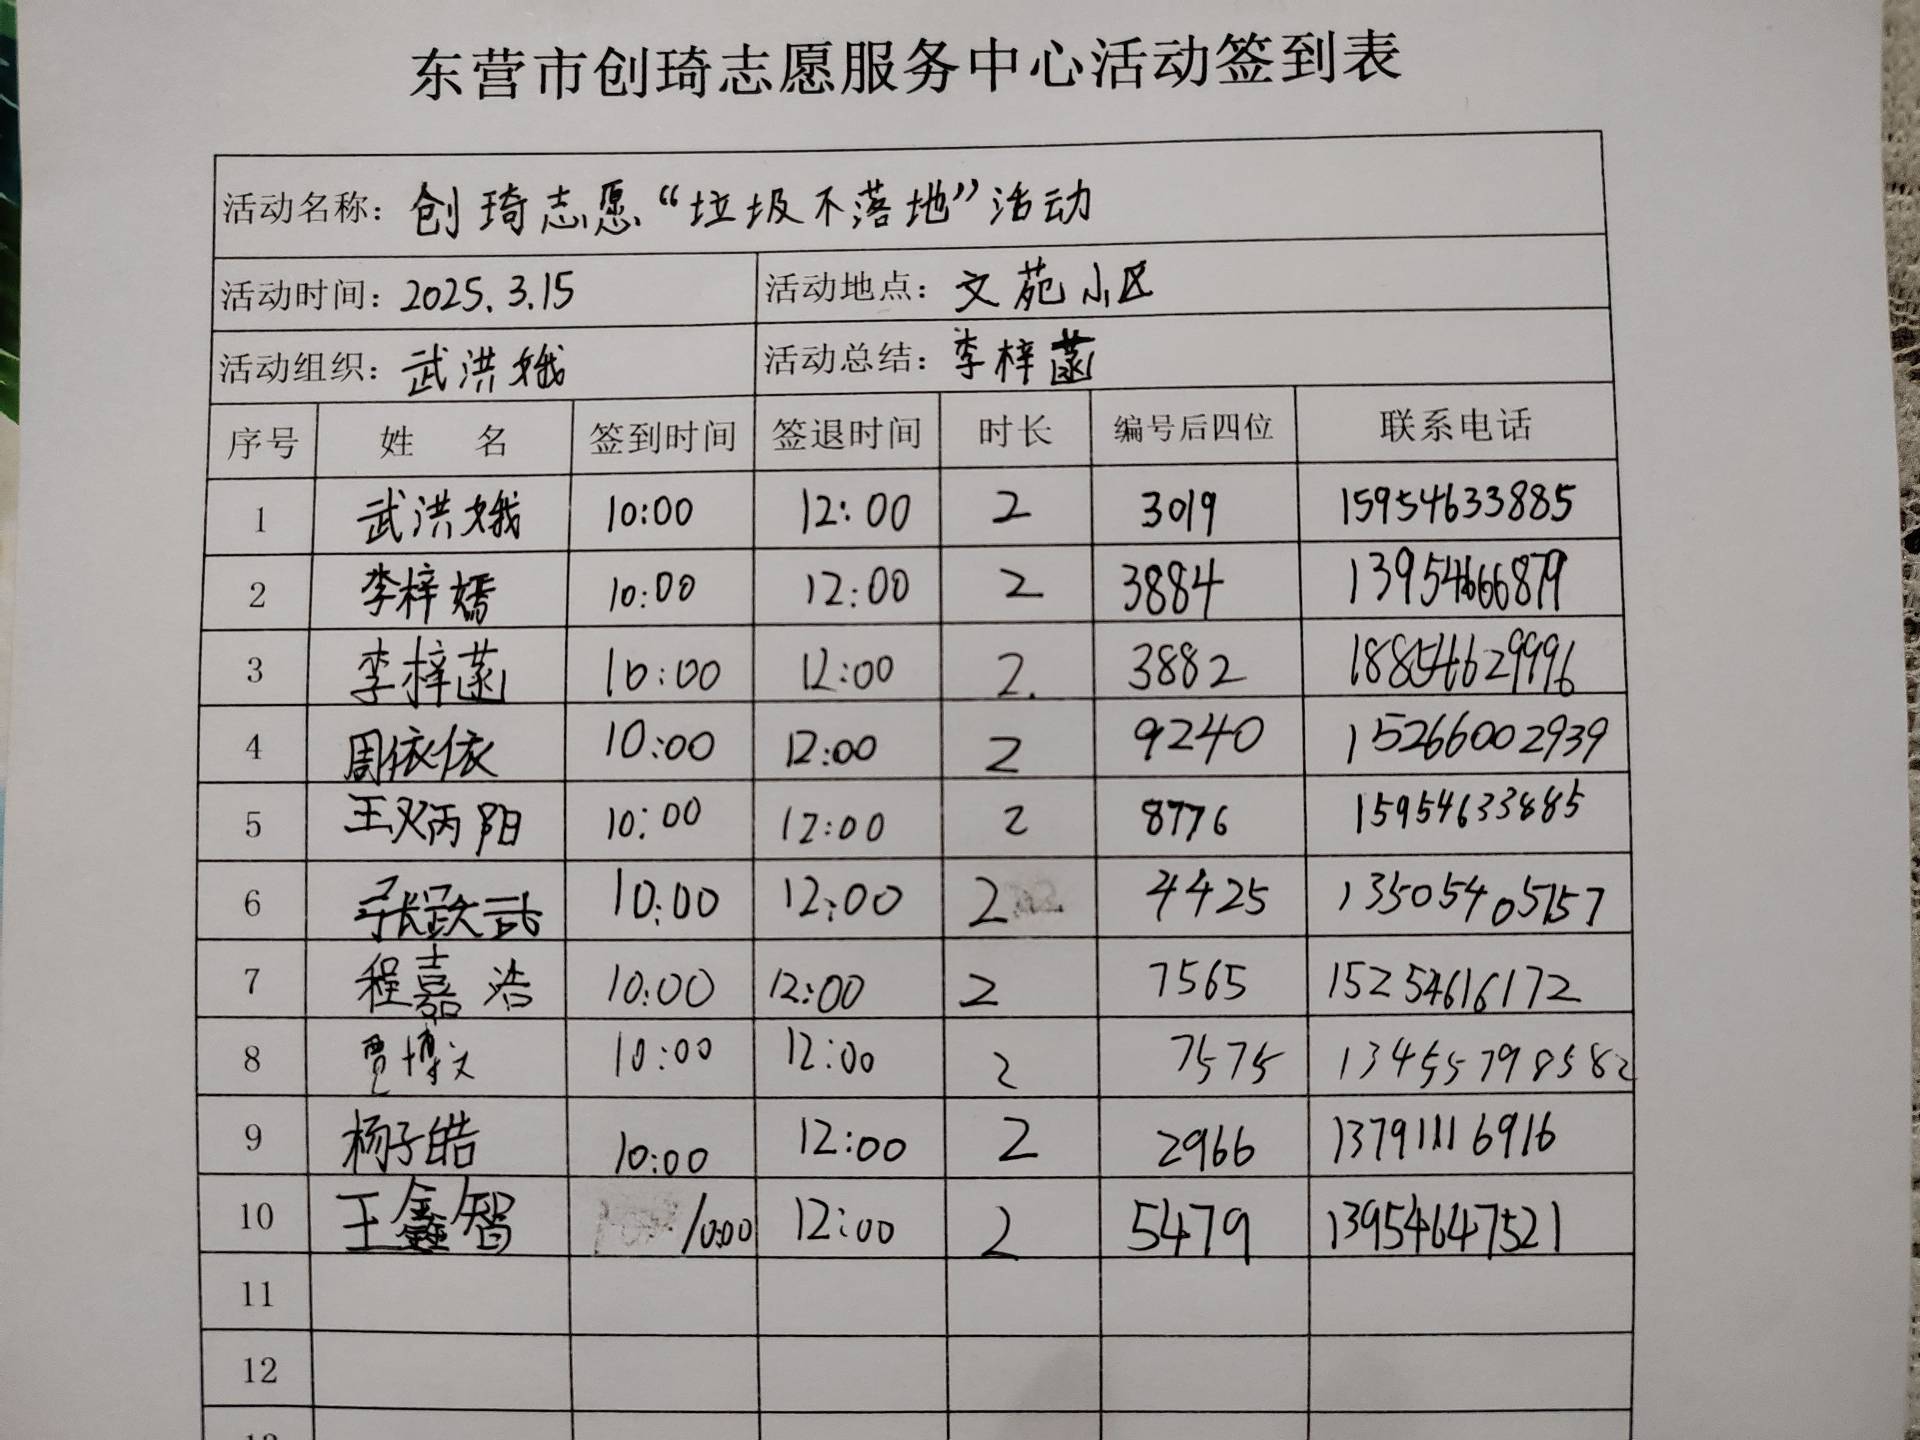 东营市创琦志愿服务中心活动签到表
活动名称: 创琦志愿“垃圾不落地”活动
活动时间: 2025.3.15 活动地点: 文苑小区
活动组织: 武洪娥 活动总结: 李梓菡
序号 姓 名 签到时间 签退时间 时长 编号后四位 联系电话
1 武洪娥 10:00 12:00 2 3019 15954633885
2 李梓嫣 10:00 12:00 2 3884 13954666879
3 李梓菡 10:00 12:00 2. 3882 18854629996
4 周依依 10:00 12:00 2 9240 15266002939
5 王双丙阳 10:00 12:00 2 8776 15954633885
6 10:00 12:00 2 4425 13505405157
7 程嘉浩 10:00 12:00 2 7565 15254616172
8 贾博文 10:00 12:00 2 7575 134555798582
9 杨子皓 10:00 12:00 2 2966 13791116916
10 王鑫智 10:00 12:00 2 5479 13954647521
11
12